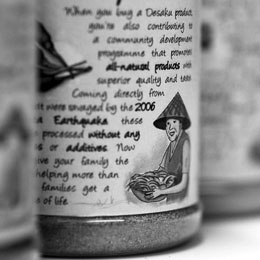 When you buy a Desaku product
you're also contributing to
a community development
programme that promotes
all-natural products with
superior quality and taste
Coming directly from
were ravaged by the 2006
Earthquake these
processed without any
or additives. Now
give your family the
helping more than
families get a
of life.